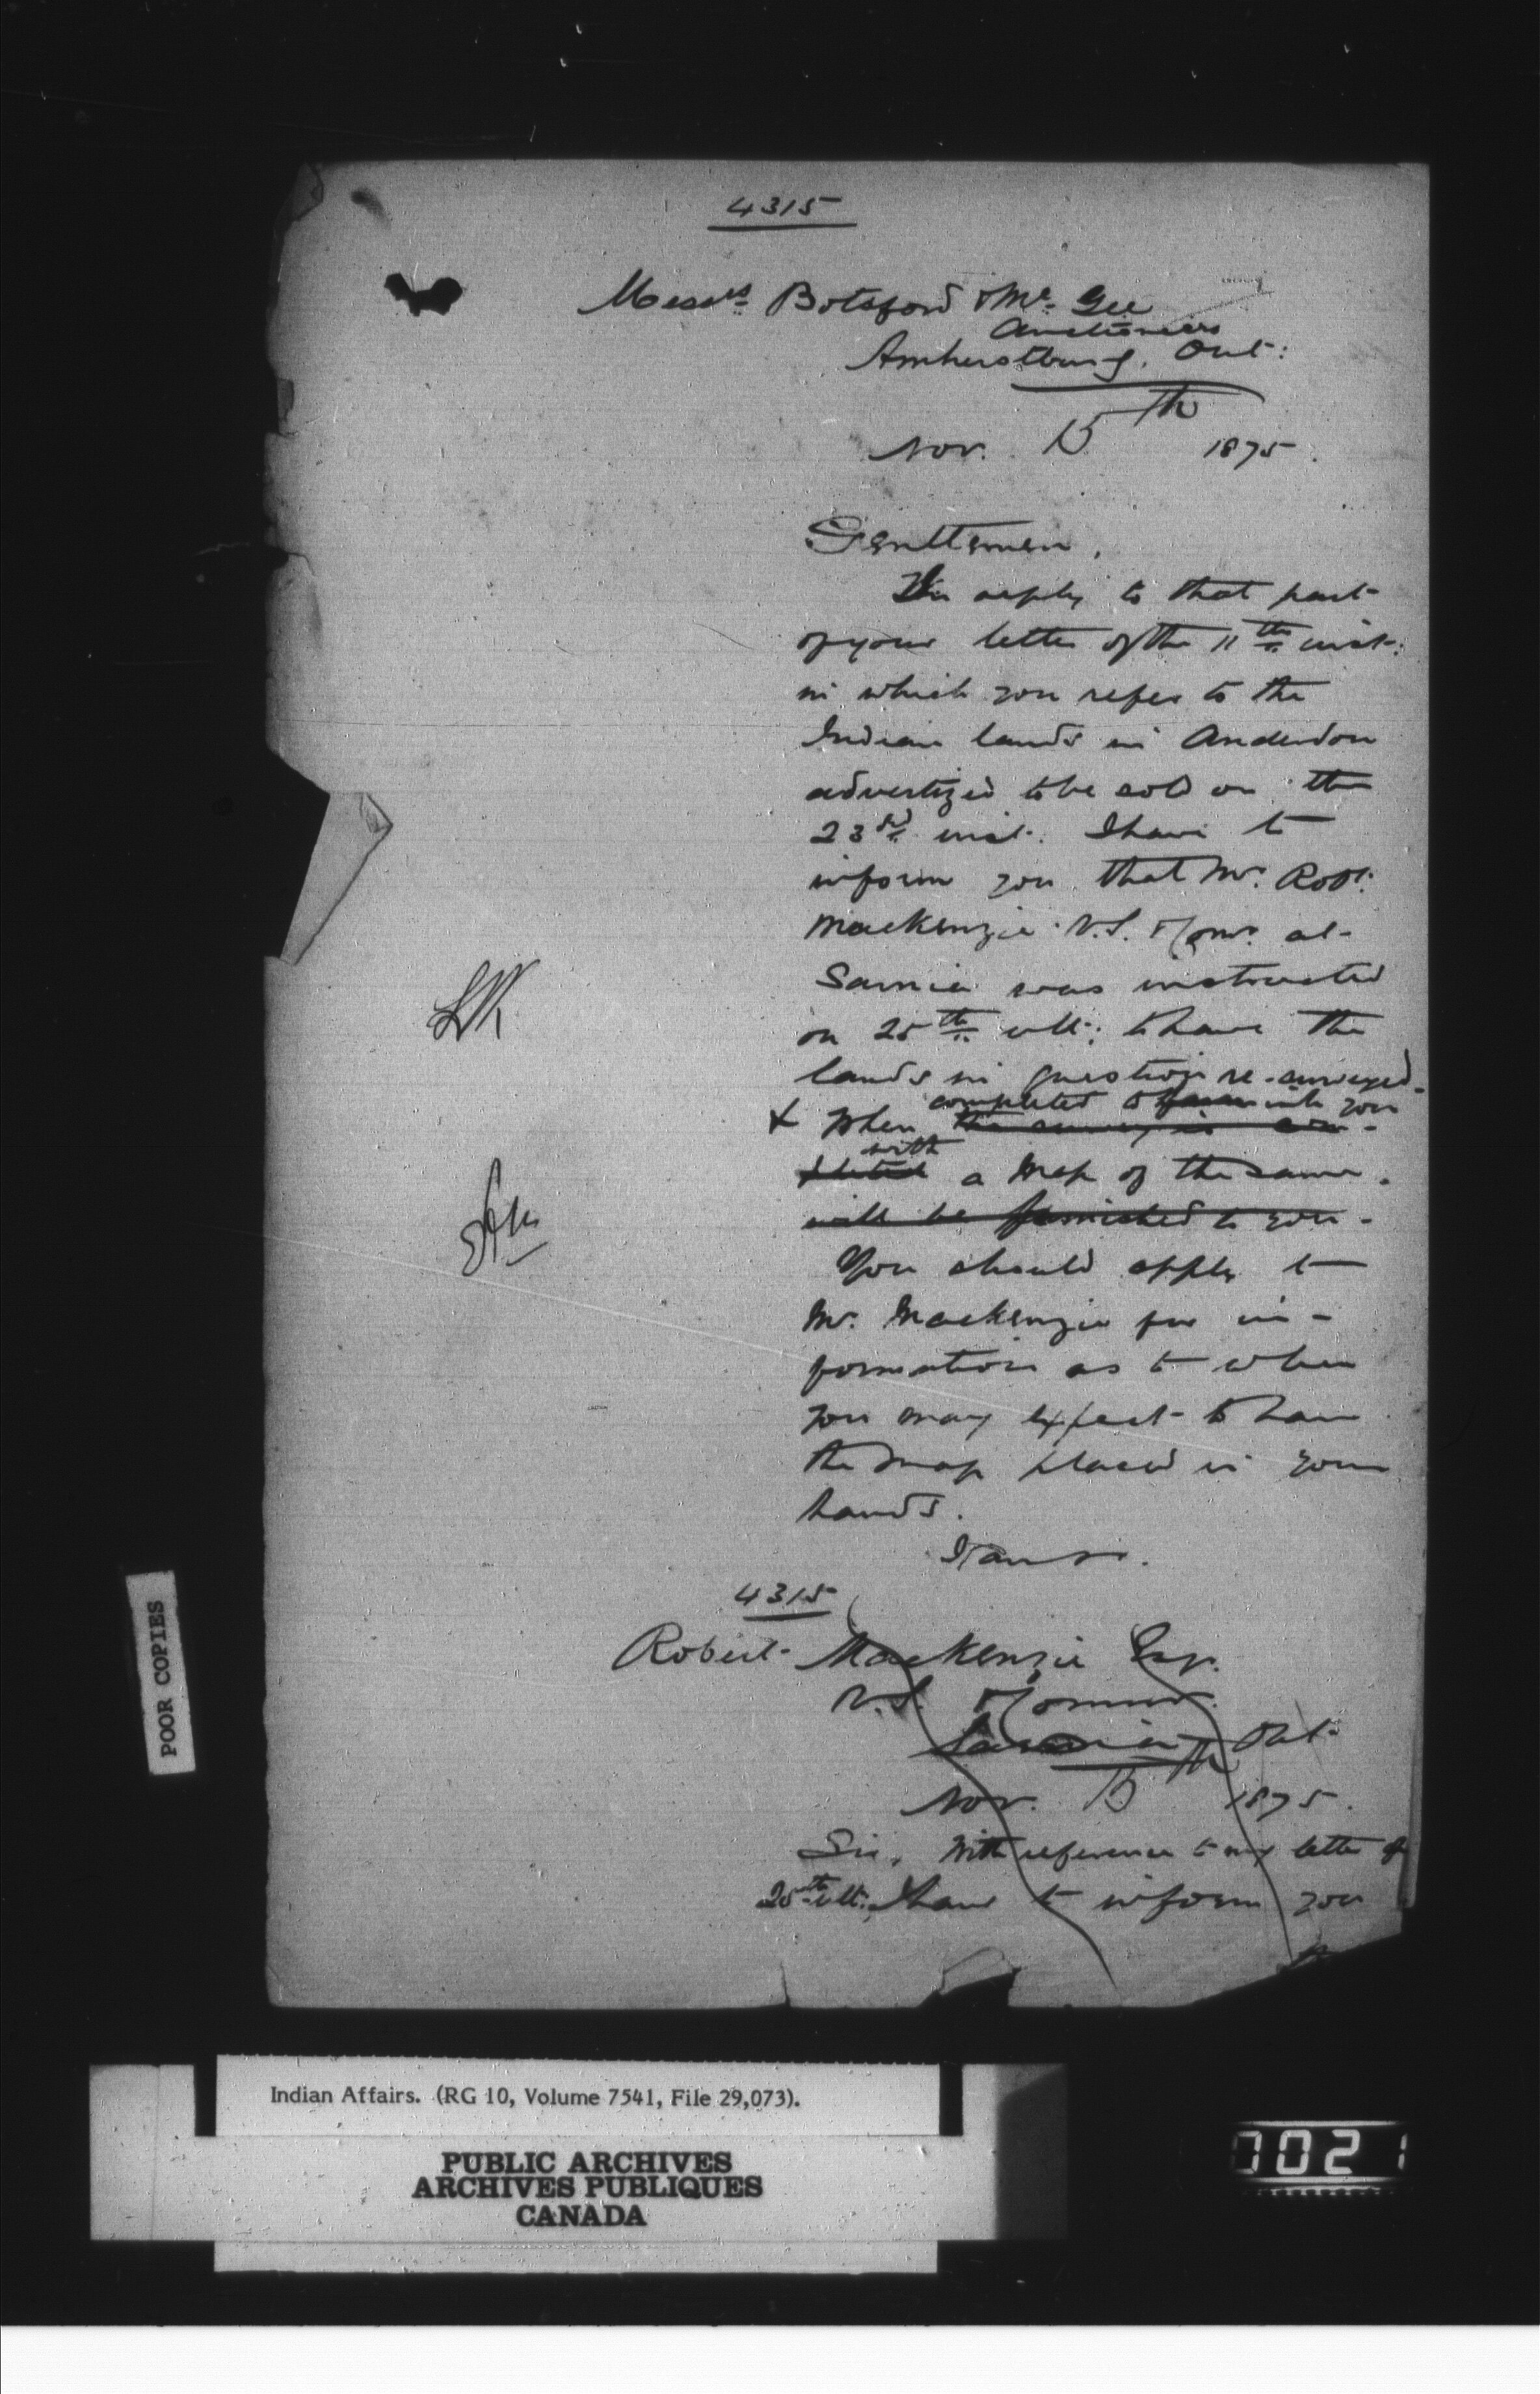 4315
Messrs Botsford & Mc Gee
Auctioneers
Amherstburg. Ont:
Nov. 15th 1875.
Gentlemen,
In reply to that part
of your letter of the 11th inst:
in which you refer to the
Indian lands in Anderdon
advertized to be sold on the
23rd inst. I have to
inform you that Mr. Robt.
Mackenzie V.S. & Comr. at
Sarnia was instructed
on 25th ult: to have the
lands in question re-surveyed
completed & furnish you
& when the survey is com-
with
pleted a map of the same.
will be furnished to you.
You should apply to
Mr. Mackenzie for in-
formation as to when
you may expect to have
the map placed in your
hands.
4315
Robert Mackenzie Esqr.
V.S. & Commr.
Sarnia, Ont.
Nov. 15th 1875.
Sir, With reference to my letter of
25th ult: I have to inform you
POOR COPIES
Indian Affairs. (RG 10, Volume 7541, File 29,073).
PUBLIC ARCHIVES
ARCHIVES PUBLIQUES
CANADA
0021